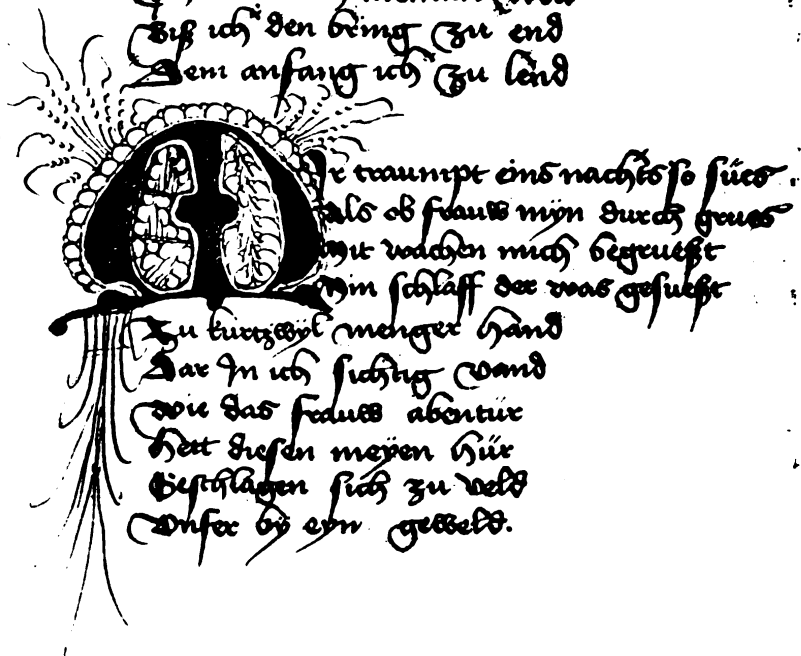 Biß ich den bring zu end
Dem anfang ich zu lend
Mir traumpt eins nachts so sües
Als ob frauw myn durch grues
Mit wachen mich begrueßt
Min schlaff der was gesueßt
Zu kurtzwyl menger hand
Dar In ich sichtig vand
Wie das frauw abentür
Hett diesen meyen hür
Geschlagen sich zu veld
Vnser by eyn geweld.